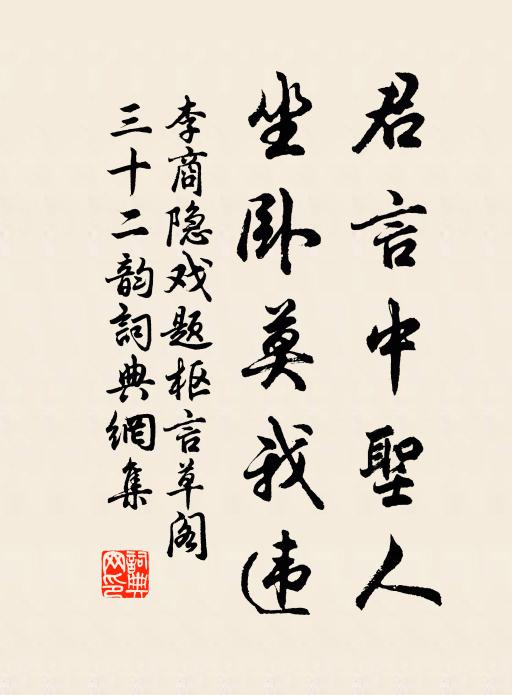 君言中聖人
坐卧莫我违
李商隐戏题枢言草阁
三十二韵詞典網集
詞典网印